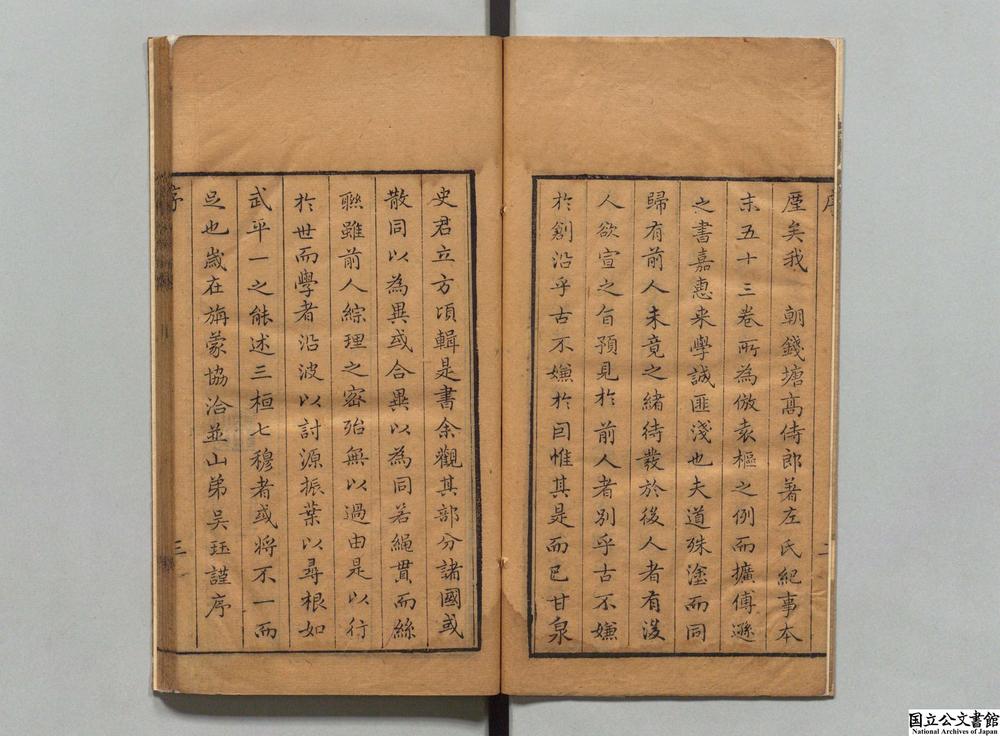 厪矣我　朝錢塘髙侍郎著左氏紀事本
末五十三卷所為倣袁樞之例而擴傅遜
之書嘉惠来學誠匪淺也夫道殊塗而同
歸有前人未竟之緒待發於後人者有後
人欲宣之旨預見於前人者別乎古不嫌
於創沿乎古不嫌於因惟其是而已甘泉
史君立方項輯是書余觀其部分諸國或
散同以為異或合異以為同若繩貫而絲
聯雖前人綜理之密殆無以過由是以行
於世而學者沿波以討源振葉以尋根如
武平一之能述三桓七穆者或將不一而
足也嵗在旃蒙協洽並山弟吳珏謹序
序
二
序
三
国立公文書館
National Archives of Japan